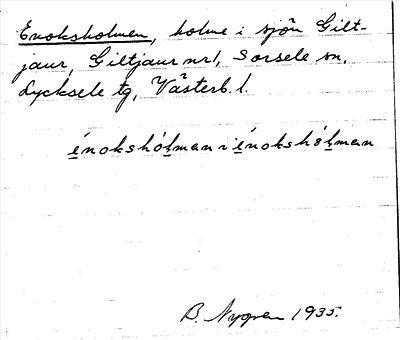 Enoksholmen, holme i sjön Gilt-
jaur, Giltjaur nr 1, Sorsele sn,
Lycksele tg, Västerb. l.
énokshólman i énokshólman
B. Nygren 1935.